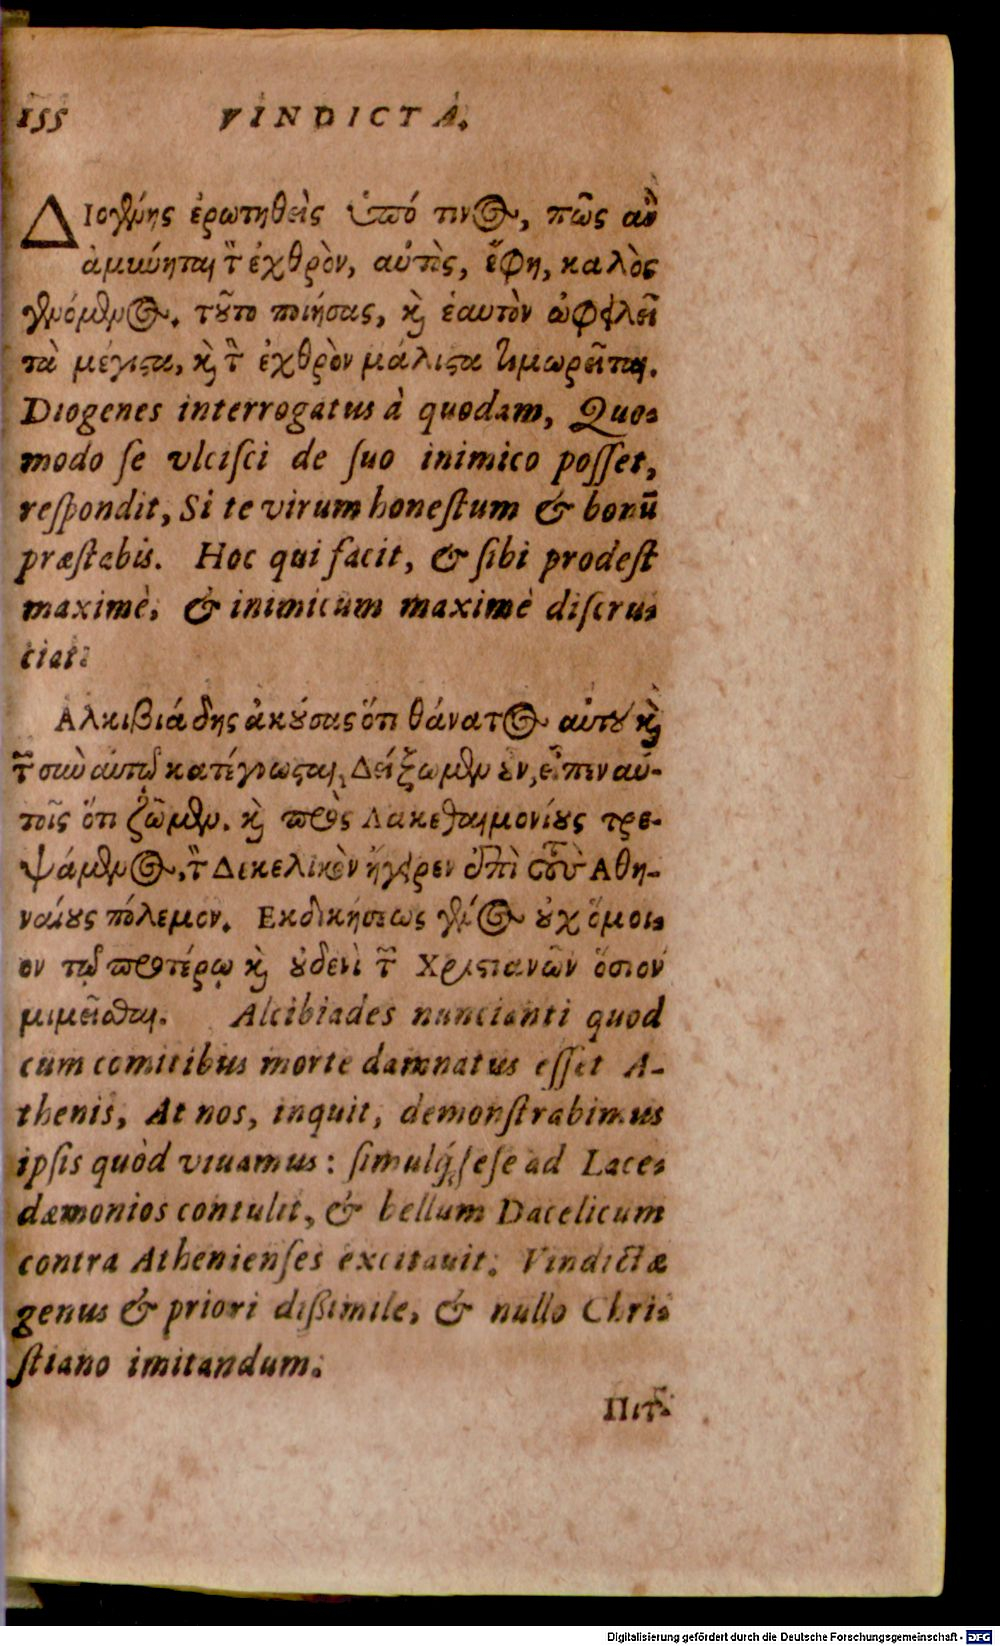 155 VINDICTA.
ΔΙογένης ἐρωτηθεὶς ὑπό τινος, πῶς ἂν
ἀμυνῆται τ̃ ἐχθρὸν, αὐτὸς, ἔφη, καλὸς
γενόμενος. τοῦτο ποιήσας, καὶ ἑαυτὸν ὠφελεῖ
τὰ μέγιστα, καὶ τ̃ ἐχθρὸν μάλιστα τιμωρεῖται.
Diogenes interrogatus à quodam, Quo-
modo ſe vlciſci de ſuo inimico poſſet,
reſpondit, Si te virum honeſtum & bonū
præſtabis. Hoc qui facit, & ſibi prodeſt
maximè, & inimicum maximè diſcru-
ciat.
Αλκιβιάδης ἀκούσας ὅτι θάνατος αὐτοῦ καὶ
τ̃ σὺν αὐτῷ κατέγνωσται, Δείξωμεν οὖν, εἶπεν αὐ-
τοῖς ὅτι ζῶμεν. καὶ πρὸς Λακεδαιμονίους τρε-
ψάμενος, τ̃ Δεκελικὸν ἤγειρεν ἐπὶ τοὺς Αθη-
ναίους πόλεμον. Εκδικήσεως γένος οὐχ ὅμοι-
ον τῷ προτέρῳ καὶ οὐδενὶ τ̃ Χριστιανῶν ὅσιον
μιμεῖσθαι. Alcibiades nuncianti quod
cum comitibus morte damnatus eſſet A-
thenis, At nos, inquit, demonſtrabimus
ipſis quòd viuamus: ſimulq́; ſeſe ad Lace-
dæmonios contulit, & bellum Dacelicum
contra Athenienſes excitauit. Vindictæ
genus & priori dißimile, & nullo Chri-
ſtiano imitandum.
Digitalisierung gefördert durch die Deutsche Forschungsgemeinschaft - DFG